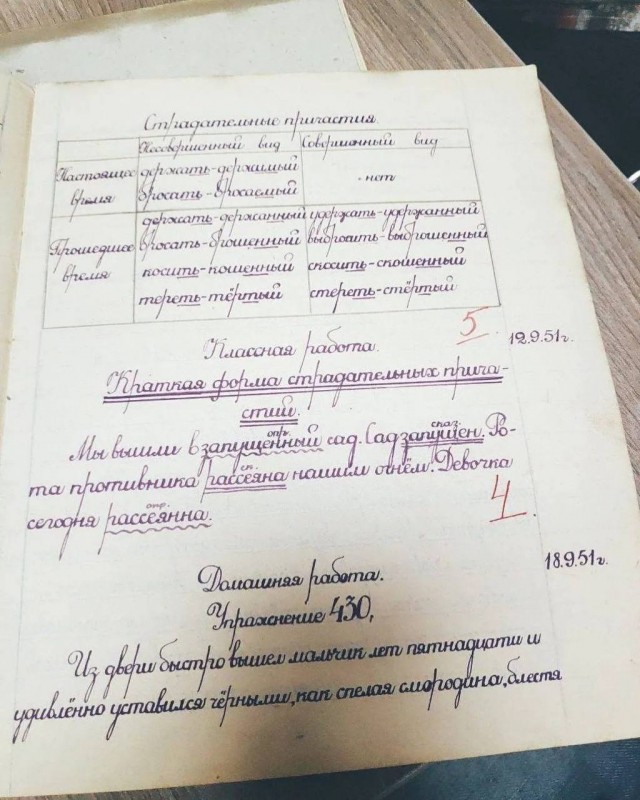 Страдательные причастия
Несовершенный вид Совершенный вид
Настоящее время
держать-держимый
бросать-бросаемый
нет
Прошедшее время
держать-держанный удержать-удержанный
бросать-брошенный выбросить-выброшенный
косить-кошенный скосить-скошенный
тереть-тёртый стереть-стёртый
5
12.9.51г.
Классная работа.
Краткая форма страдательных прича-
стий.
опр. сказ.
Мы вышли в запущенный сад. Сад запущен. Ро-
ск.
та противника рассеяна нашим огнём. Девочка
опр.
сегодня рассеянна.
4
18.9.51г.
Домашняя работа.
Упражнение 430,
Из двери быстро вышел мальчик лет пятнадцати и
удивлённо уставился чёрными, как спелая смородина, блестя